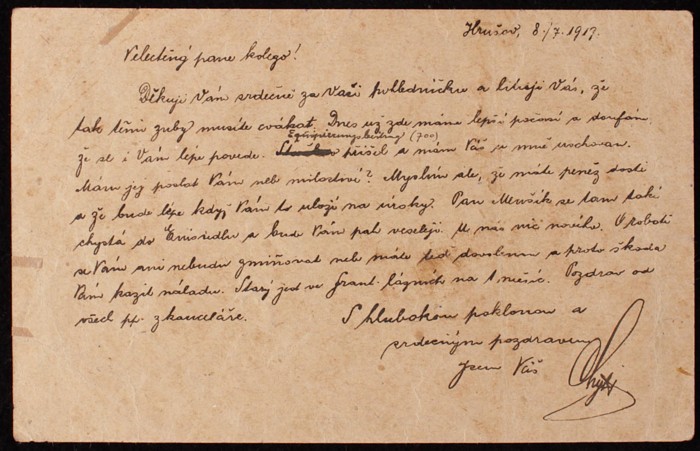 Hrušov, 8./7. 1917.
Velectěný pane kolego!
Děkuji Vám srdečně za Vaši pohlednicku a lituji Vás, že
tak těmi zuby musíte cvakat. Dnes už zde máme lepší počasí a doufám,
Equipierungsbeitrag (700)
že se i Vám lépe povede. přišel a mám Vás u mně uschovan.
Mám jej poslat Vám neb milostivé? Myslím ale, že máte peněz dosti
a že bude lépe když Vám to uloží na úroky. Pan Menšík se tam také
chystá do a bude Vám pak veseleji. U nás nic nového. O robotě
se Vám ani nebudu zmiňovat neb máte teď dovolenou a proto škoda
Vám kazit náladu. Starý jed ve Frant. lázních na 1 měsíc. Pozdrav od
všech pp. z kanceláře.
S hlubokou poklonou a
srdečným pozdravem
jsem Váš